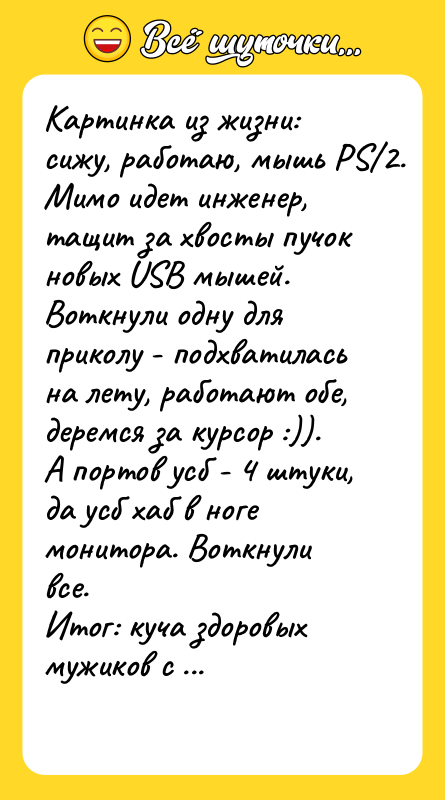 Всё шуточки...
Картинка из жизни:
сижу, работаю, мышь PS/2.
Мимо идет инженер,
тащит за хвосты пучок
новых USB мышей.
Воткнули одну для
приколу - подхватилась
на лету, работают обе,
деремся за курсор :)).
А портов усб - 4 штуки,
да усб хаб в ноге
монитора. Воткнули
все.
Итог: куча здоровых
мужиков с ...